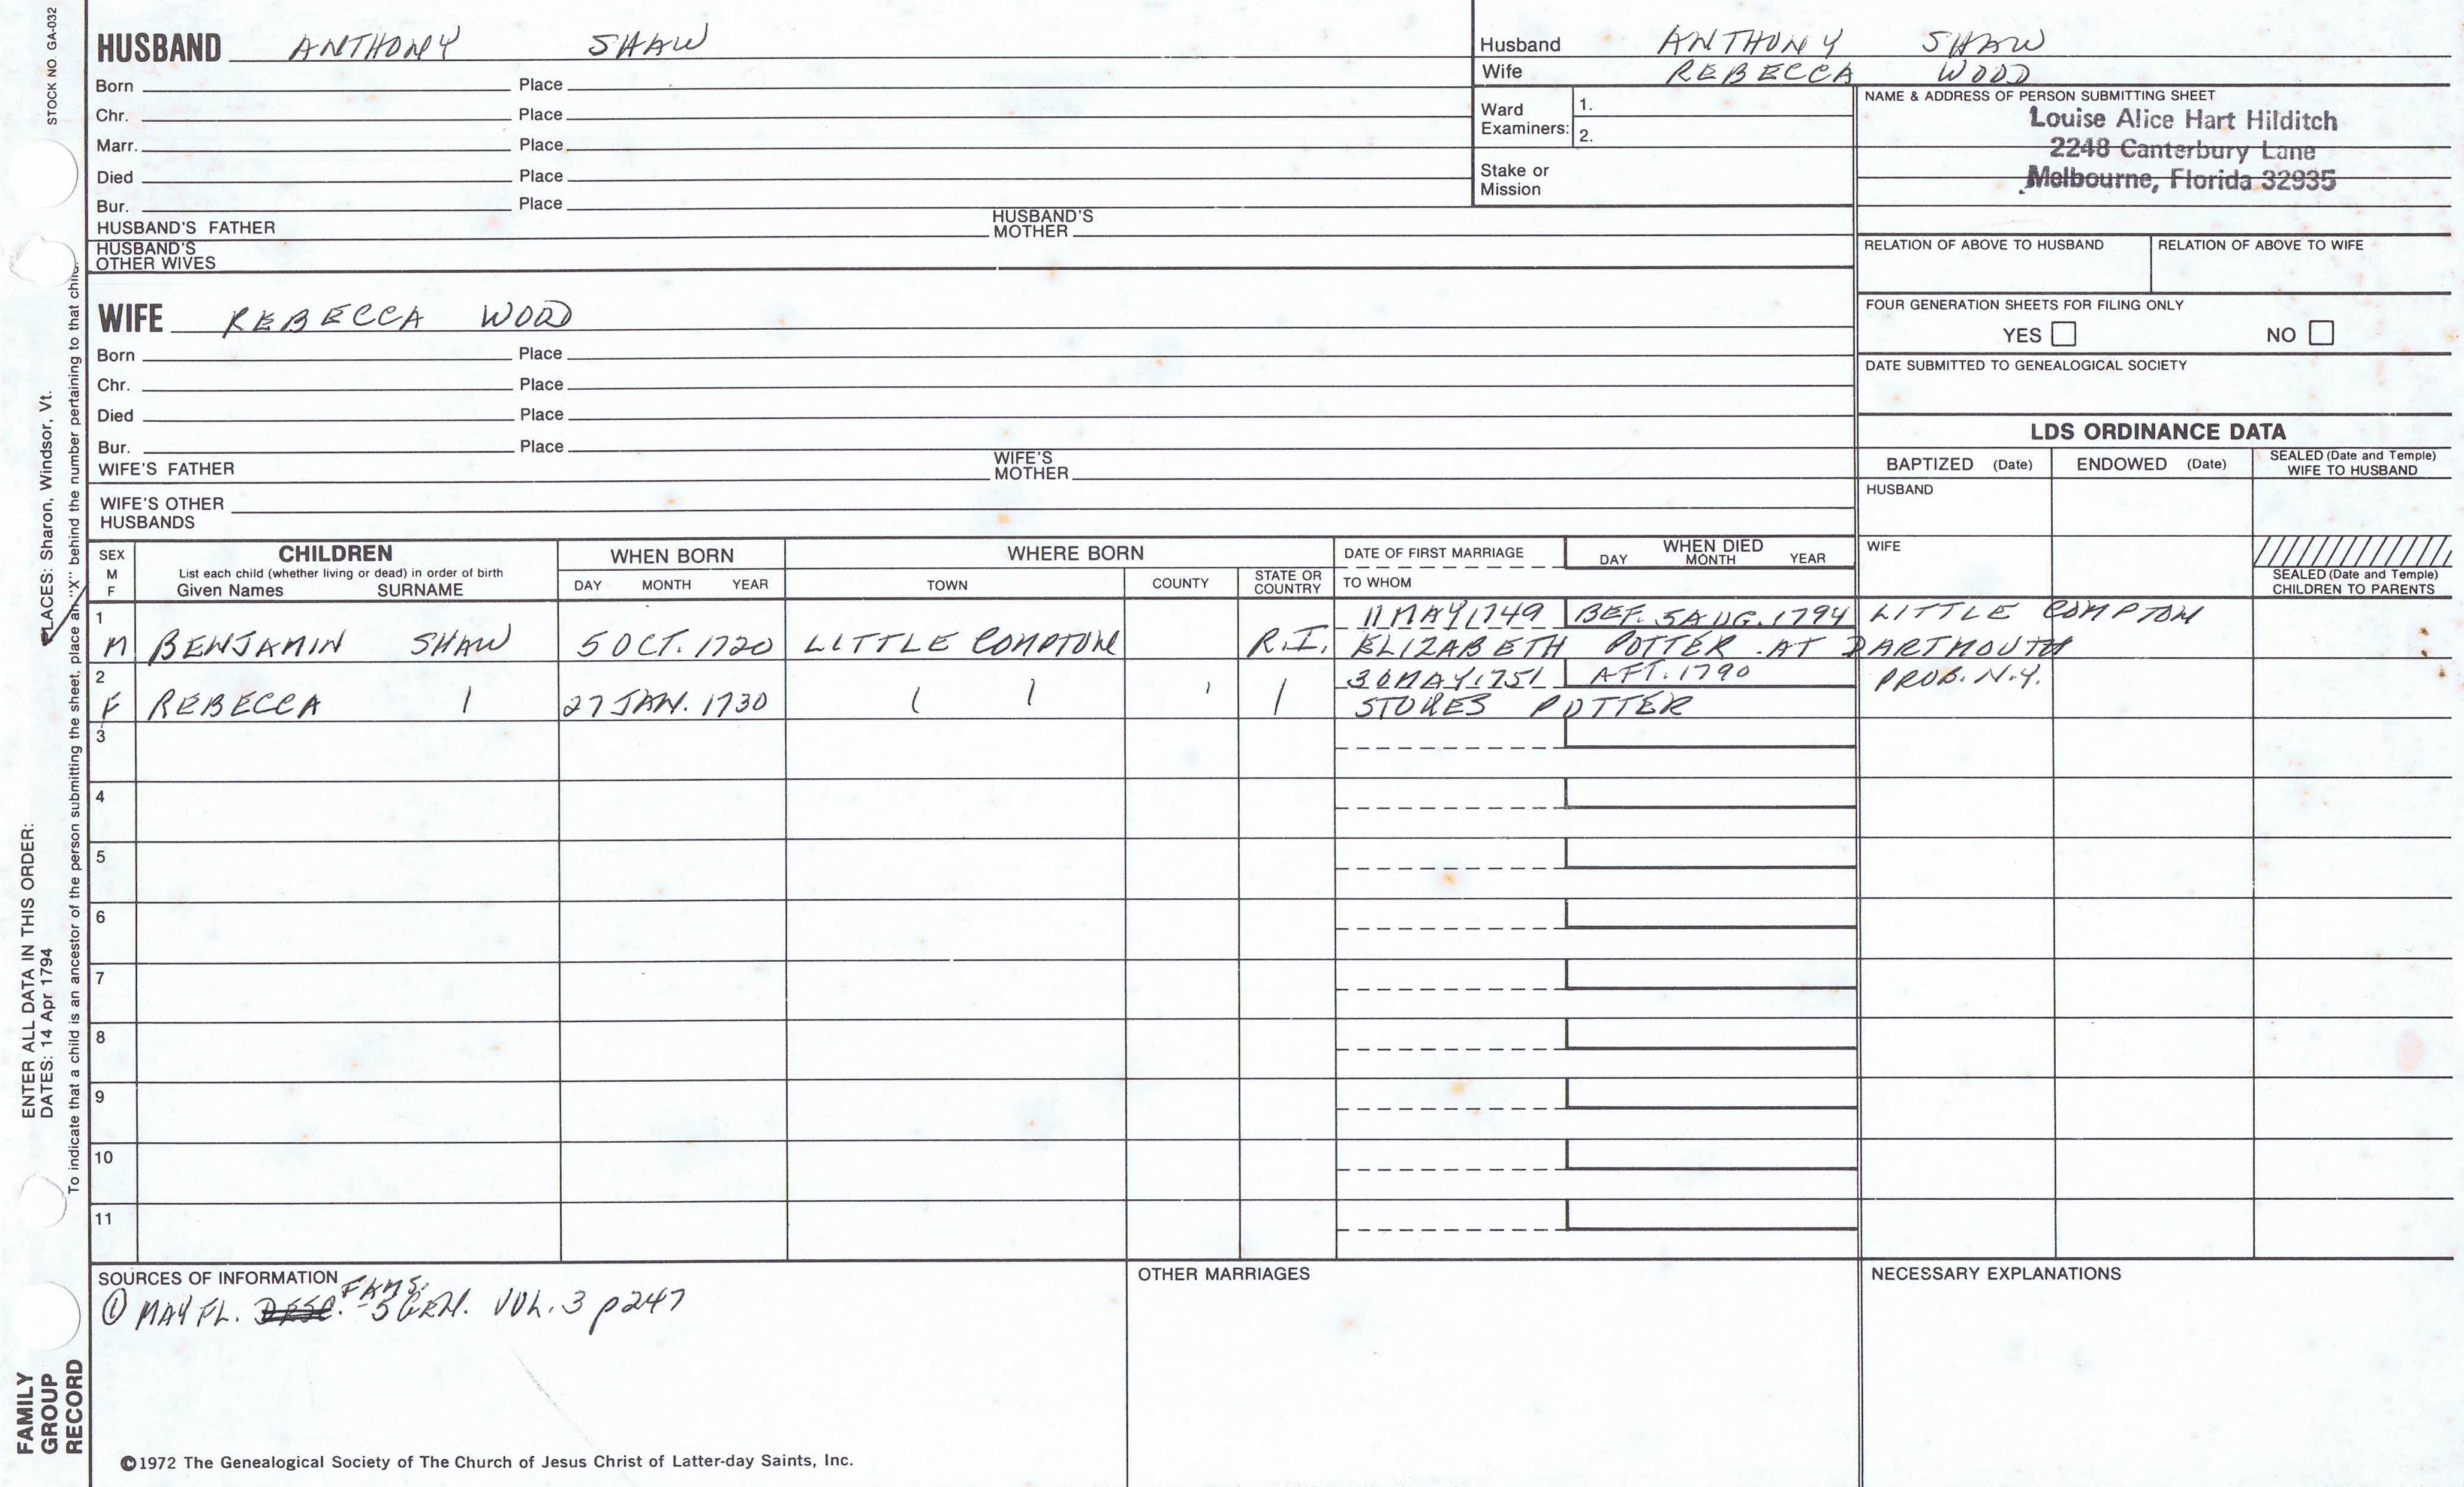 STOCK NO GA-032
HUSBAND ANTHONY SHAW
Born Place
Chr. Place
Marr. Place
Died Place
Bur. Place
HUSBAND'S FATHER HUSBAND'S MOTHER
HUSBAND'S OTHER WIVES
Husband ANTHONY SHAW
Wife REBECCA WOOD
Ward Examiners: 1.
2.
Stake or Mission
NAME & ADDRESS OF PERSON SUBMITTING SHEET
Louise Alice Hart Hilditch
2248 Canterbury Lane
Melbourne, Florida 32935
RELATION OF ABOVE TO HUSBAND RELATION OF ABOVE TO WIFE
FOUR GENERATION SHEETS FOR FILING ONLY
YES NO
DATE SUBMITTED TO GENEALOGICAL SOCIETY
WIFE REBECCA WOOD
Born Place
Chr. Place
Died Place
Bur. Place
WIFE'S FATHER WIFE'S MOTHER
WIFE'S OTHER HUSBANDS
LDS ORDINANCE DATA
BAPTIZED (Date) ENDOWED (Date) SEALED (Date and Temple) WIFE TO HUSBAND
HUSBAND
WIFE
SEALED (Date and Temple) CHILDREN TO PARENTS
SEX M F
CHILDREN
List each child (whether living or dead) in order of birth
Given Names SURNAME
WHEN BORN
DAY MONTH YEAR
WHERE BORN
TOWN COUNTY STATE OR COUNTRY
DATE OF FIRST MARRIAGE
TO WHOM
WHEN DIED
DAY MONTH YEAR
1 11 MAY 1749 BEF. 5 AUG. 1794 LITTLE COMPTON
M BENJAMIN SHAW 5 OCT. 1720 LITTLE COMPTON R.I. ELIZABETH POTTER AT DARTMOUTH
2 30 MAY 1751 AFT. 1790 PROB. N.Y.
F REBECCA 27 JAN. 1730 STORES POTTER
3
4
5
6
7
8
9
10
11
SOURCES OF INFORMATION
① MAY FL. FAMS. -5 GEN. VOL. 3 p247
OTHER MARRIAGES
NECESSARY EXPLANATIONS
©1972 The Genealogical Society of The Church of Jesus Christ of Latter-day Saints, Inc.
FAMILY GROUP RECORD
ENTER ALL DATA IN THIS ORDER:
DATES: 14 Apr 1794
PLACES: Sharon, Windsor, Vt.
To indicate that a child is an ancestor of the person submitting the sheet, place an "X" behind the number pertaining to that child.